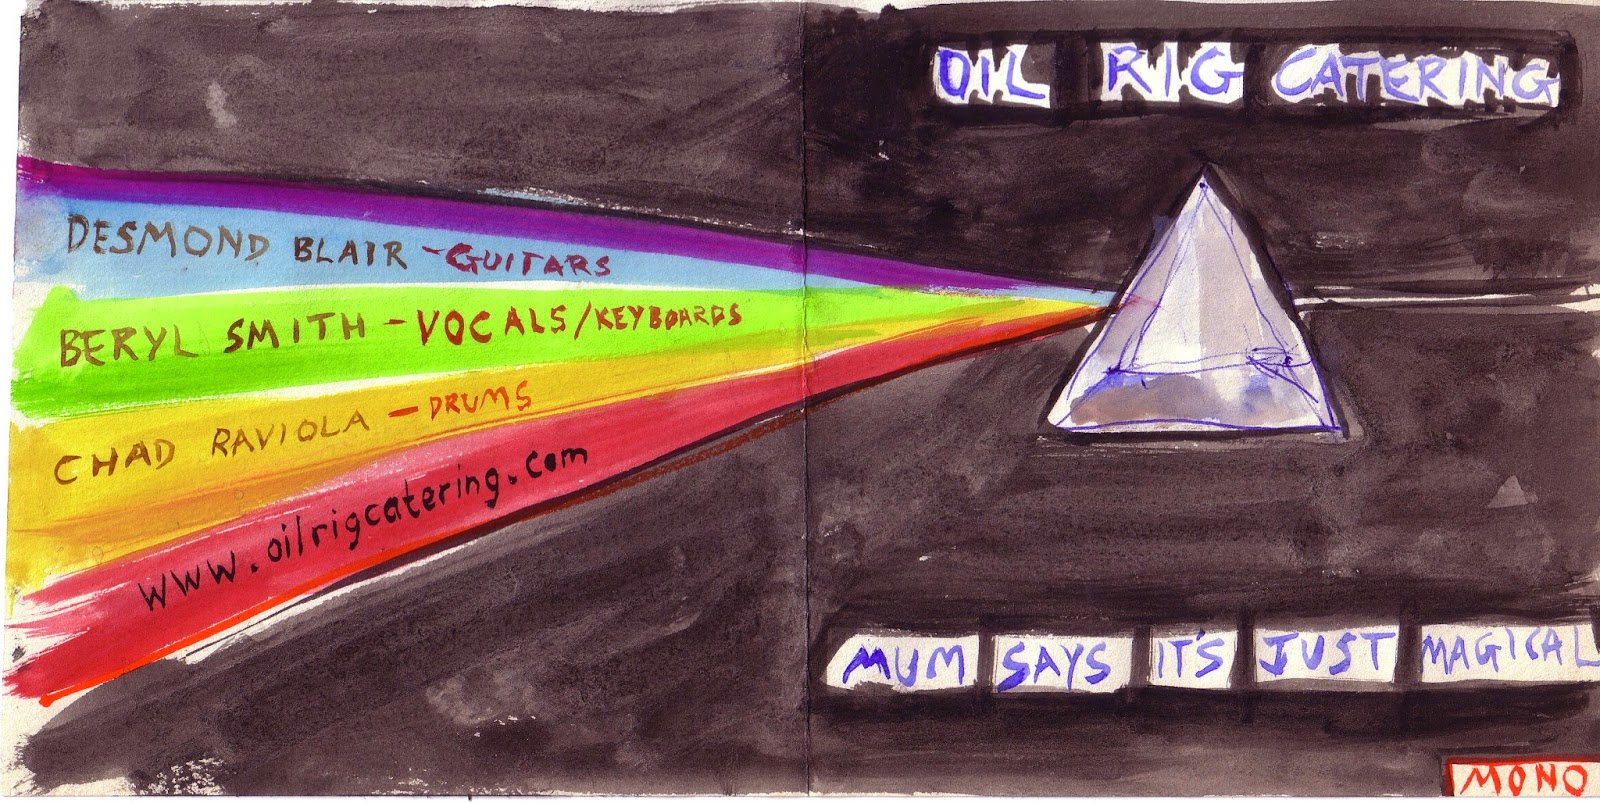 OIL RIG CATERING
DESMOND BLAIR - GUITARS
BERYL SMITH - VOCALS/KEYBOARDS
CHAD RAVIOLA - DRUMS
www.oilrigcatering.com
MUM SAYS IT'S JUST MAGICAL
MONO